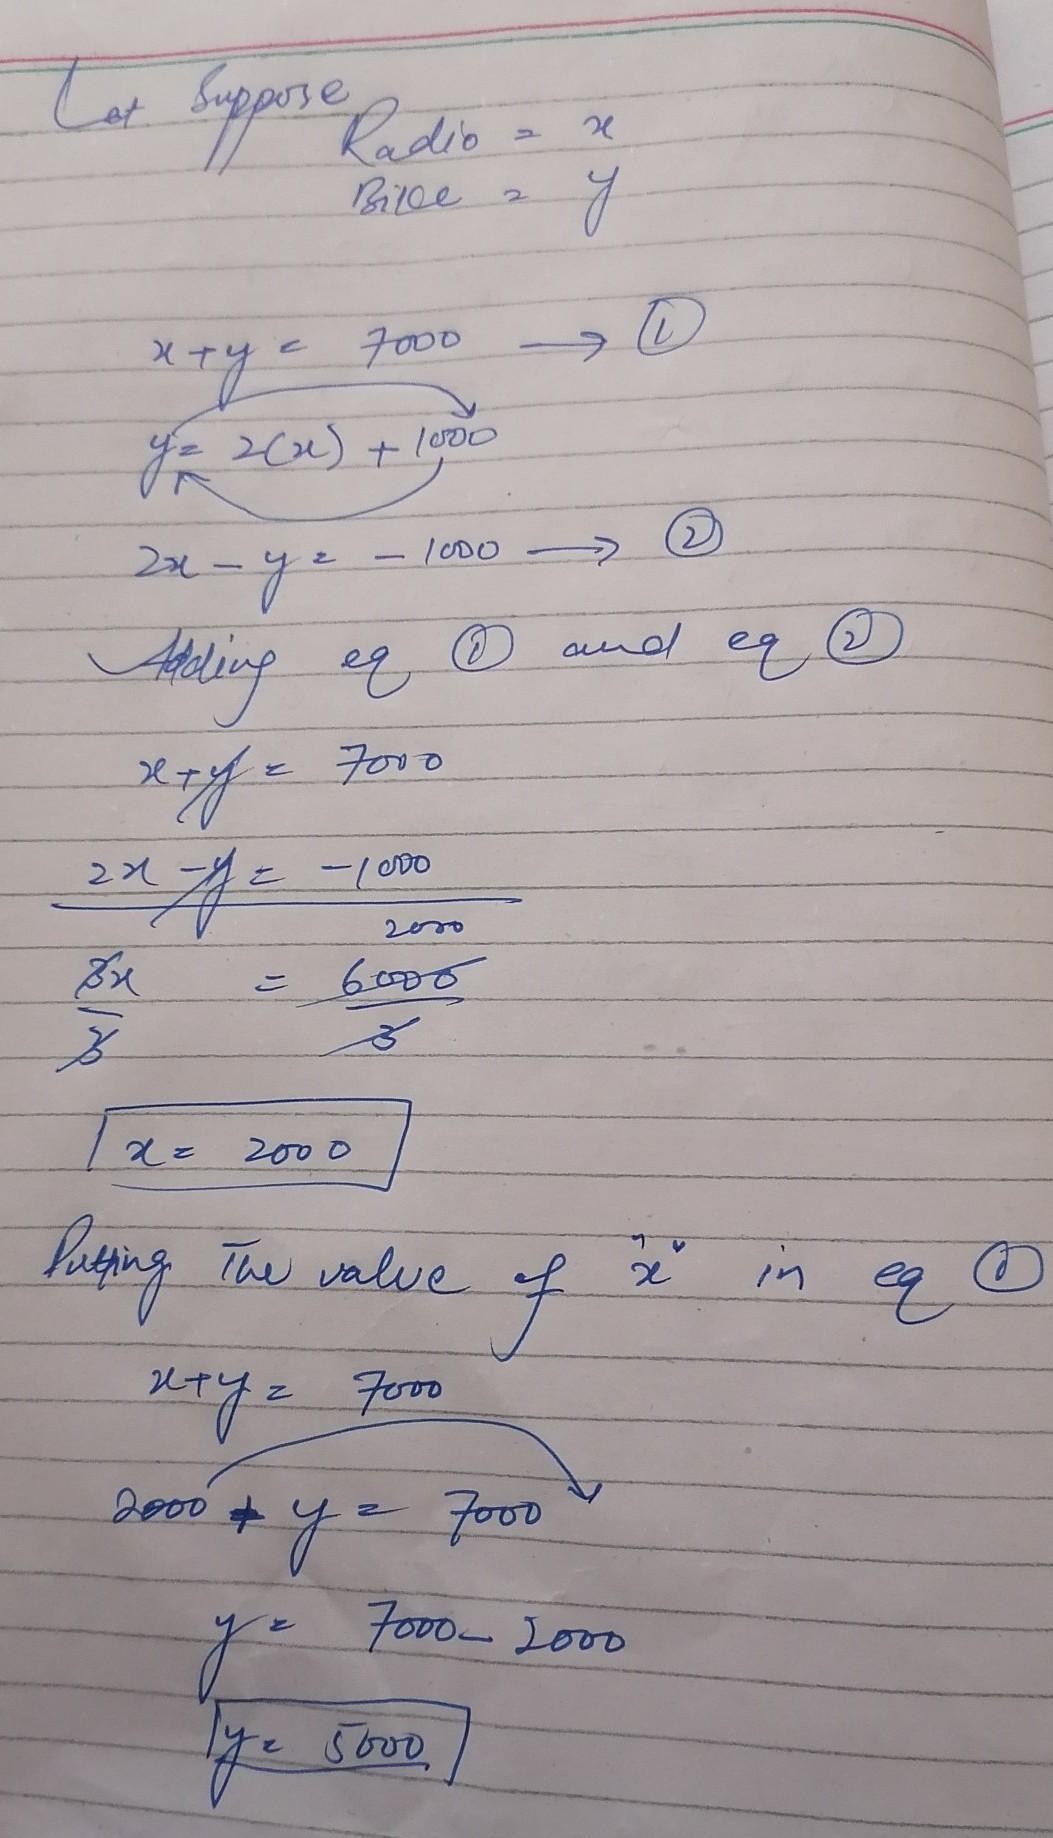 Let Suppose
Radio = x
Bike = y
x + y = 7000 → ①
y = 2(x) + 1000
2x - y = - 1000 → ②
Adding eq ① and eq ②
x + y = 7000
2x - y = -1000
2000
3x = 6000
3 3
x = 2000
Putting The value of "x" in eq ①
x + y = 7000
2000 + y = 7000
y = 7000 - 2000
y = 5000